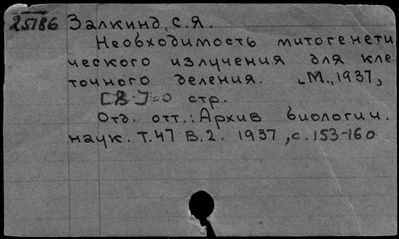 25186 Залкинд, С.Я.
Необходимость митогенети
ческого излучения для кле
точного деления. М., 1937,
[8] с стр.
Отд. отт.: Архив биологич.
наук. Т.47 В.2. 1937, с.153-160